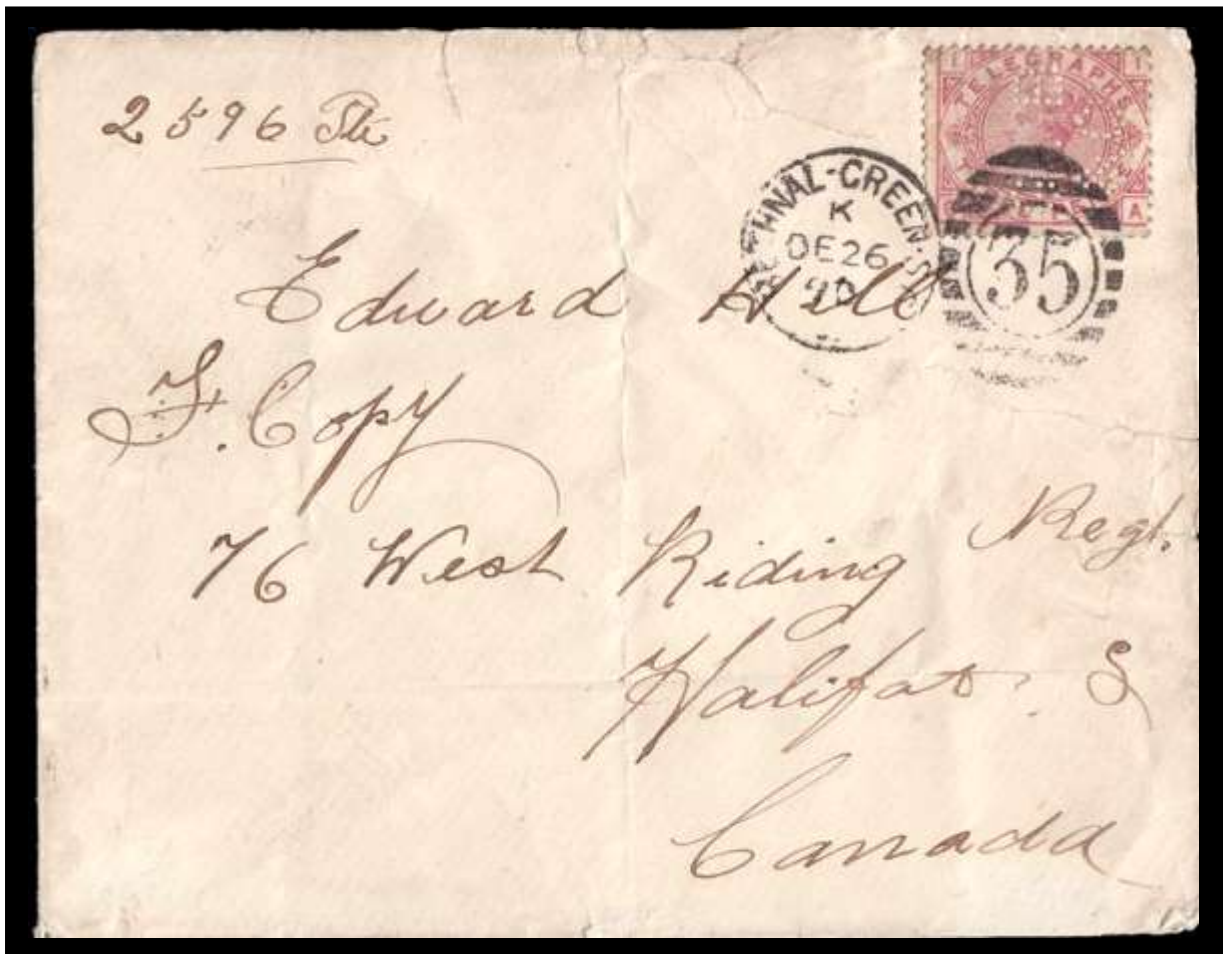 2596 Pte
TELEGRAPHS
A
BETHNAL-GREEN-S.O
K
DE 26
90
35
Edward Hill
F. Copy
76 West Riding Regt.
Halifax S
Canada